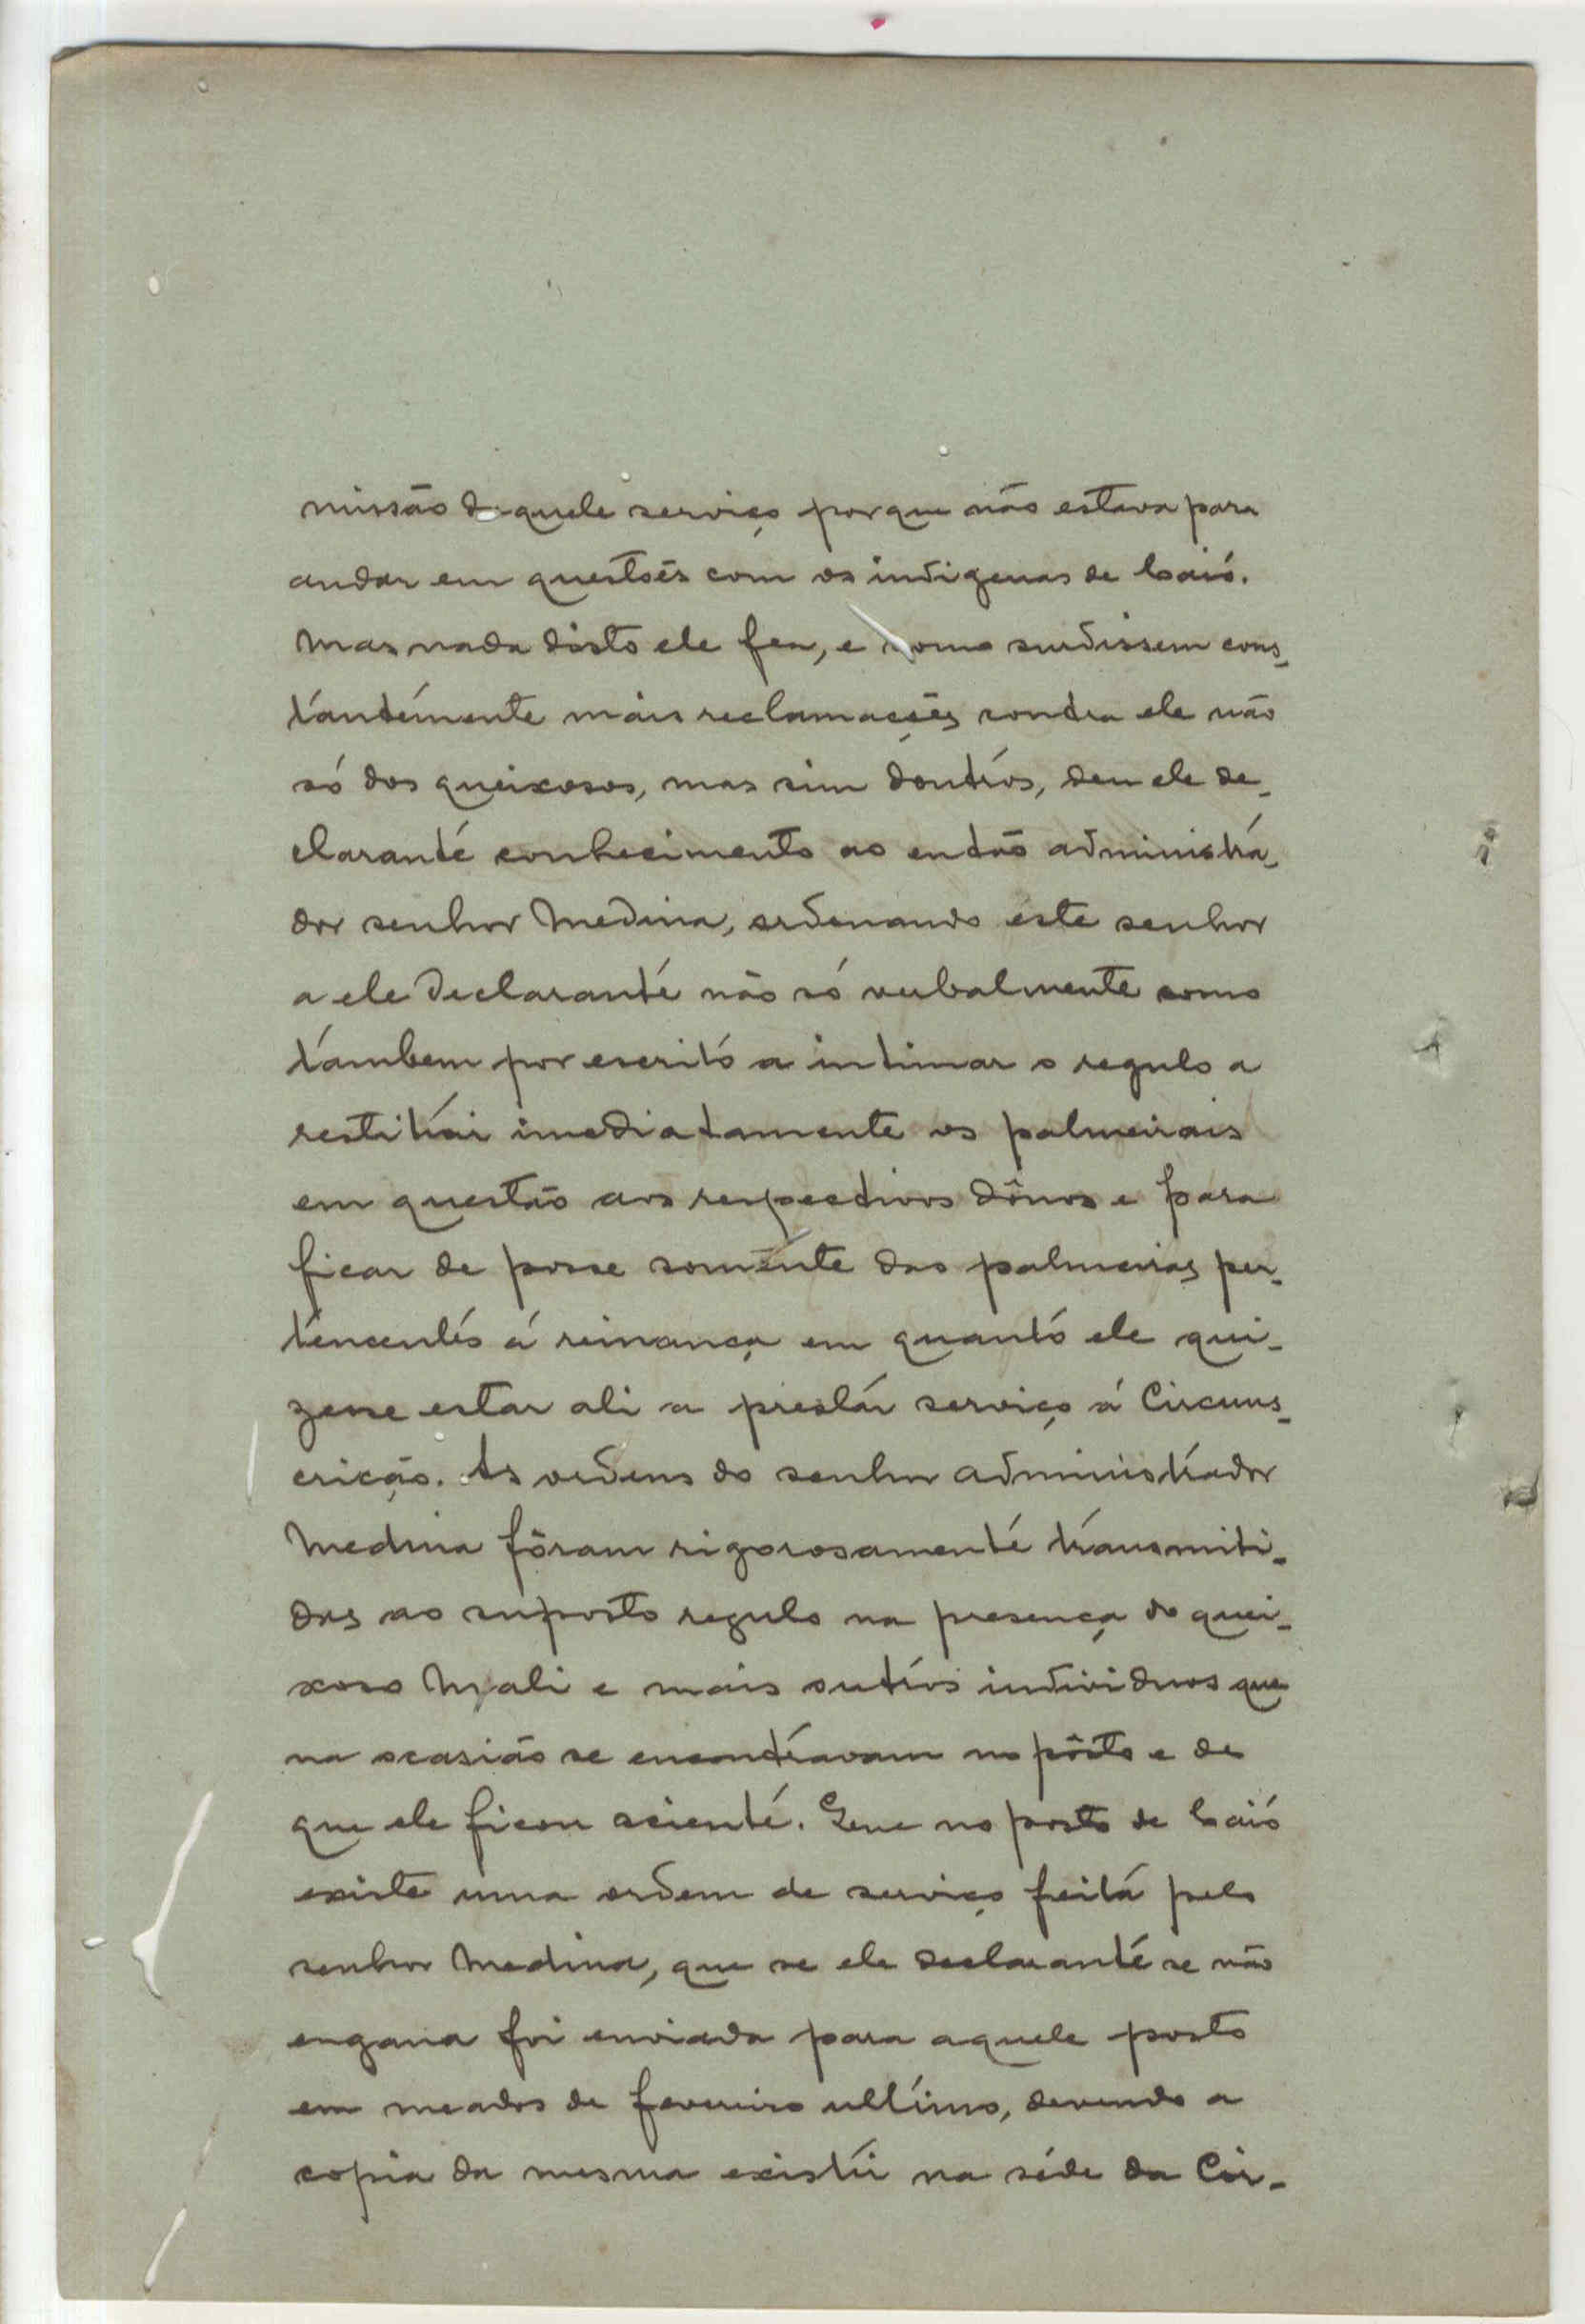 missão daquele serviço porque não estava para
andar em questões com os indigenas de Caió.
Mas nada disto ele fez, e como surdissem cons-
tantemente mais reclamações contra ele não
só dos queixosos, mas sim doutros, deu ele de-
clarante conhecimento ao então administra-
dor senhor Medina, ordenando este senhor
a ele declarante não só verbalmente como
tambem por escrito a intimar o regulo a
restituir imediatamente os palmeirais
em questão aos respectivos dônos e para
ficar de posse somente das palmeiras per-
tencentes á reinança em quanto ele qui-
zesse estar ali a prestar serviço á Circuns-
crição. As ordens do senhor administrador
Medina fôram rigorosamente transmiti-
das ao suposto regulo na presença do quei-
xoso Mali e mais outros individuos que
na ocasião se encontravam no pôsto e de
que ele ficou sciente. Que no posto de Caió
existe uma ordem de serviço feita pelo
senhor Medina, que se ele declarante se não
engana foi enviada para aquele posto
em meados de fevereiro ultimo, devendo a
copia da mesma existir na séde da Cir-